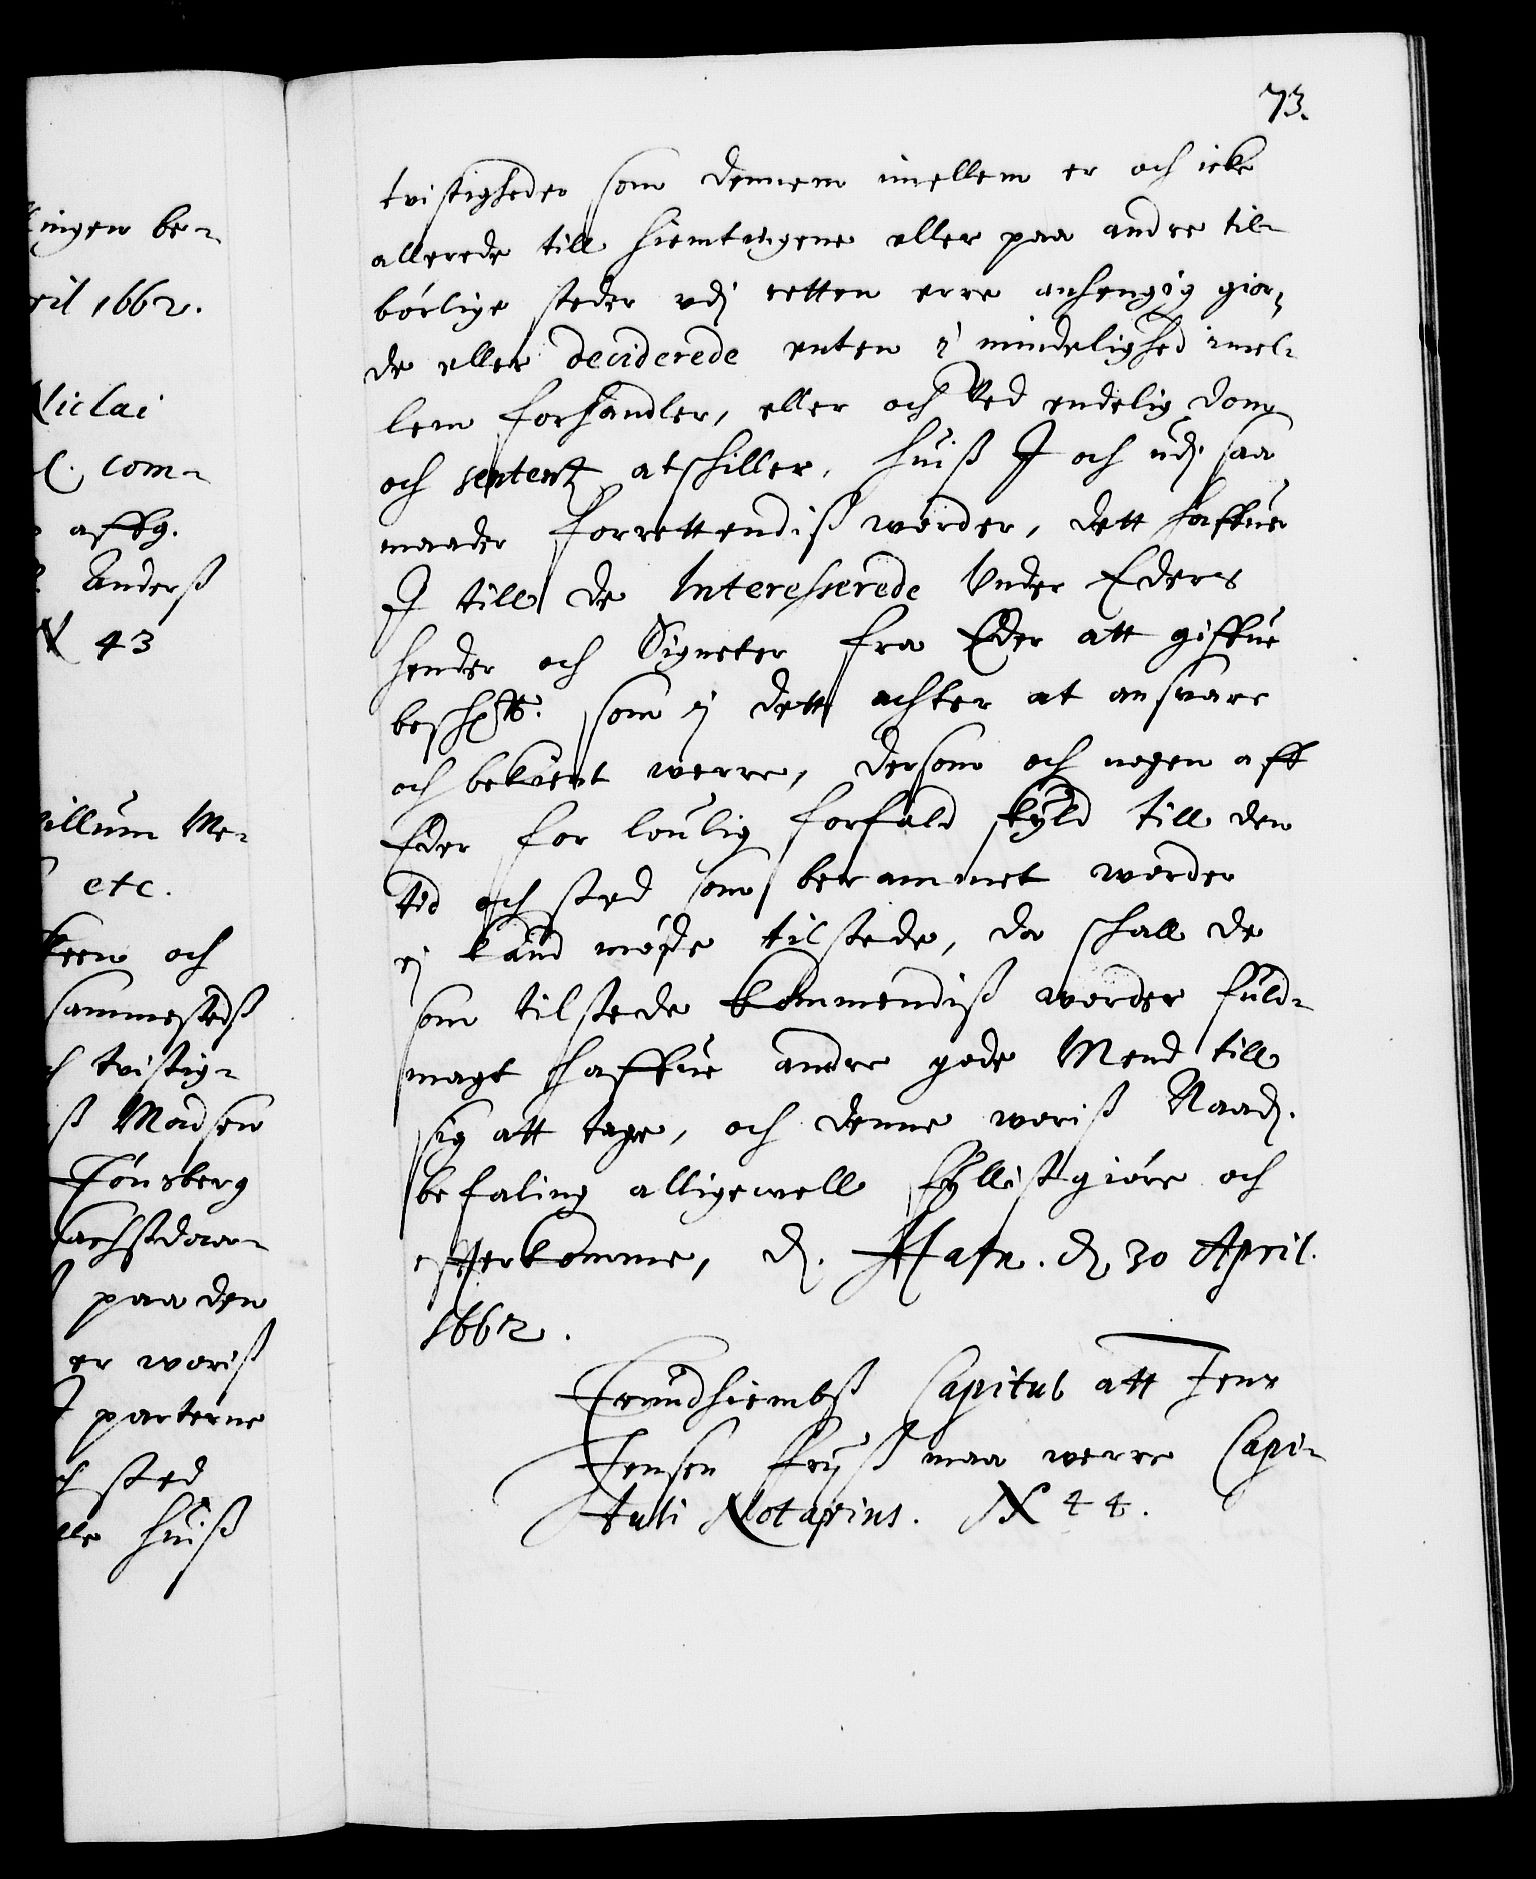 ingen be-
ril 1662.
Niclai
l. com-
affg.
Anderß
N 43
illum Me-
etc.
keen och
sammesteds
h tvistig-
ß Madsen
Tönsberg
paa den
er woriß
parterne
h sted
lle huiß
73.
tvistigheder som dennem imellem er och icke
allerede till hiemtingene eller paa andre til-
börlige steder udj retten erre anhengig gior-
de eller deciderede enten i mindelighed imel-
lem forhandler, eller och Ved endelig dom
och sententz atskiller, huiß I och udj saa
maader forrettendiß worder, dett haffuer
I till de Interesserede Under Eders
hender och Signeter fra Eder att giffue
som i dett achter at ansvare
och bekient werre, dersom och nogen aff
Eder for loulig forfald skyld till den
tid och sted som berammet worder
ej kand möde tilstede, da skall de
som tilstede kommendiß worder fuld-
magt haffue andre gode Mend till
sig att tage, och denne woriß Naad.
befaling alligewell fyllistgiöre och
efterkomme, d. Hafn. d. 30 April.
1662.
Trundhiembß Capitul att Jens
Jensen maa werre Capi-
tuli Notarius. N 44.